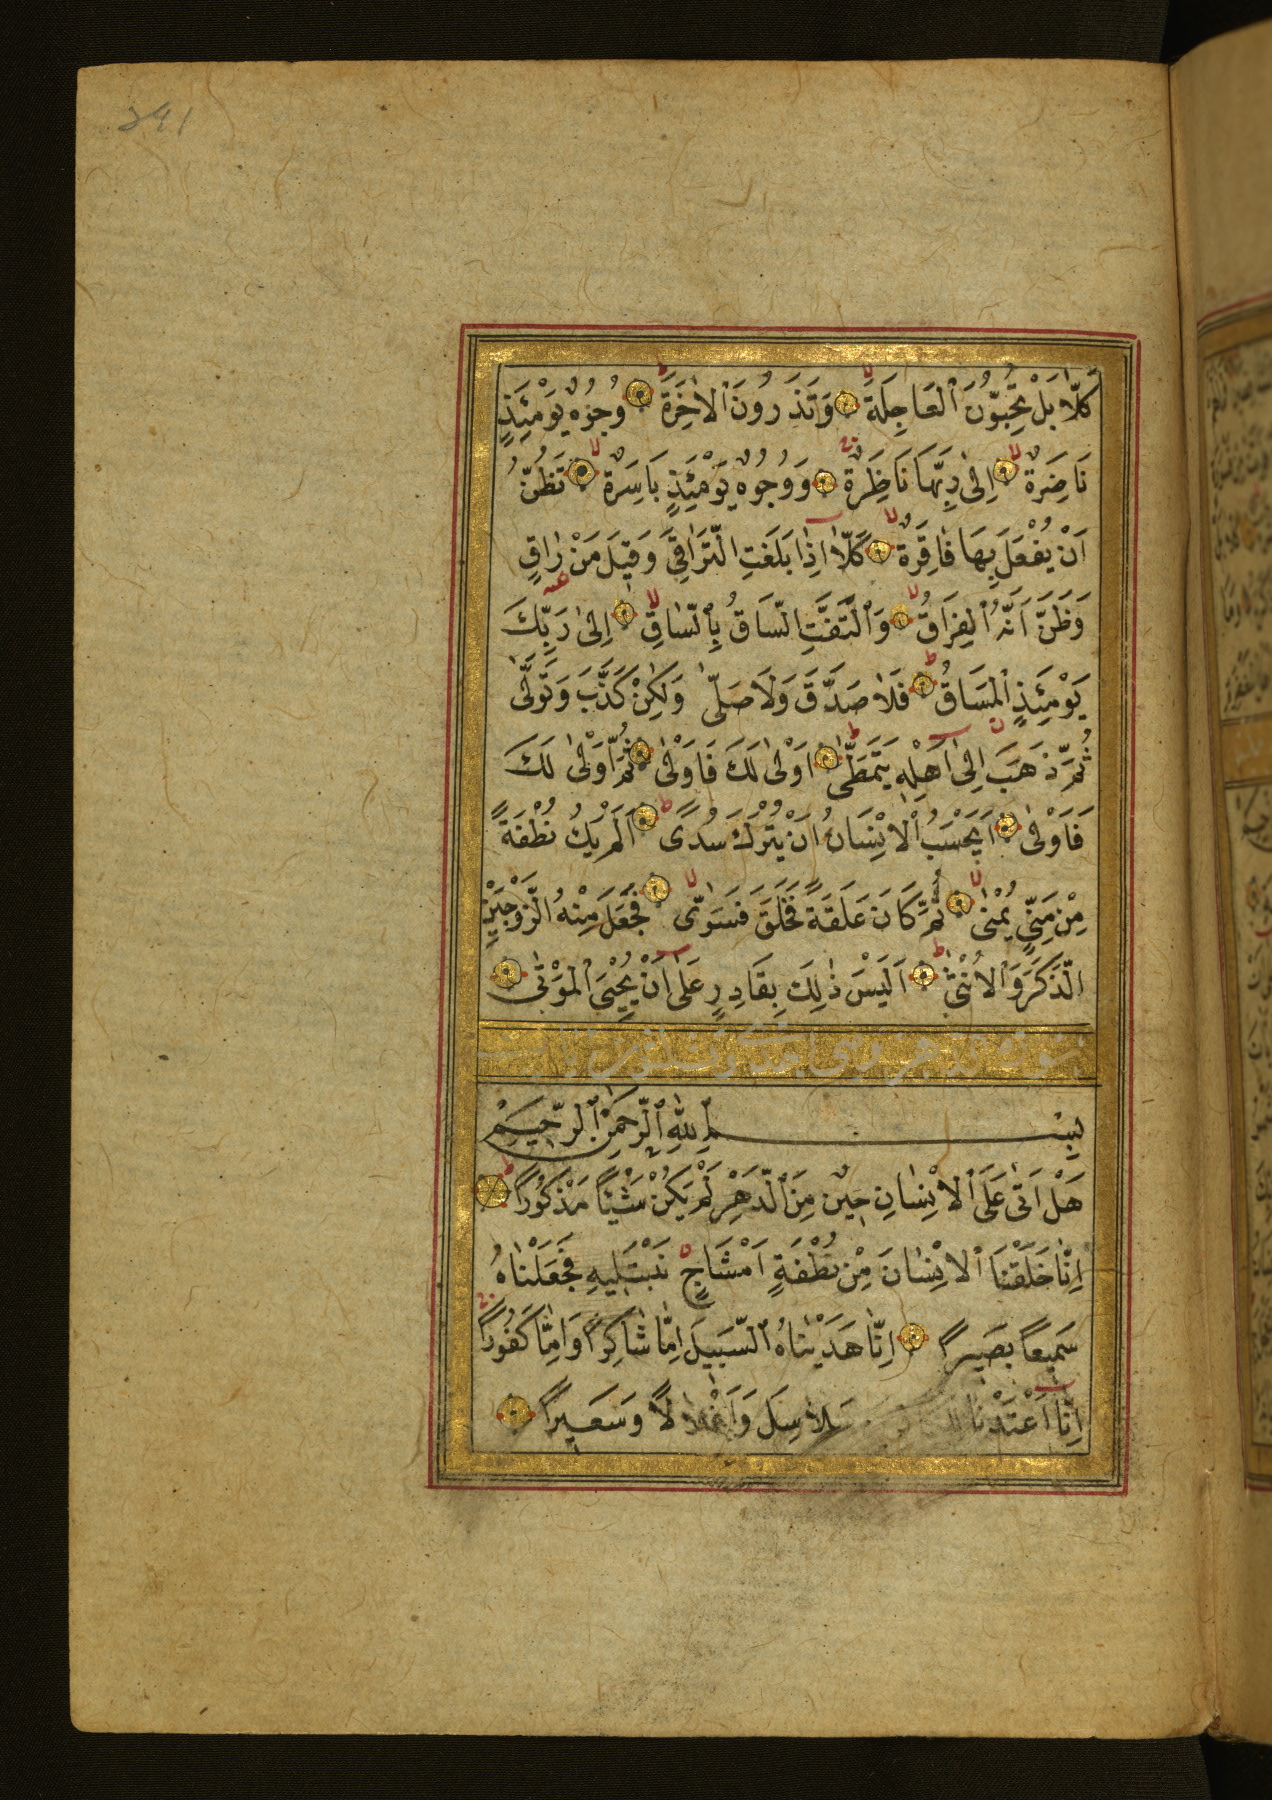 291
كَلَّا بَلْ تُحِبُّونَ ٱلْعَاجِلَةَ وَتَذَرُونَ ٱلْاٰخِرَةَ وُجُوهٌ يَوْمَئِذٍ
نَاضِرَةٌ اِلٰى رَبِّهَا نَاظِرَةٌ وَوُجُوهٌ يَوْمَئِذٍ بَاسِرَةٌ تَظُنُّ
اَنْ يُفْعَلَ بِهَا فَاقِرَةٌ كَلَّا اِذَا بَلَغَتِ التَّرَاقِيَ وَقِيلَ مَنْ رَاقٍ
وَظَنَّ اَنَّهُ ٱلْفِرَاقُ وَٱلْتَفَّتِ السَّاقُ بِٱلسَّاقِ اِلٰى رَبِّكَ
يَوْمَئِذٍ ٱلْمَسَاقُ فَلَا صَدَّقَ وَلَا صَلّٰى وَلٰكِنْ كَذَّبَ وَتَوَلّٰى
ثُمَّ ذَهَبَ اِلٰى اَهْلِهِ يَتَمَطّٰى اَوْلٰى لَكَ فَاَوْلٰى ثُمَّ اَوْلٰى لَكَ
فَاَوْلٰى اَيَحْسَبُ ٱلْاِنْسَانُ اَنْ يُتْرَكَ سُدًى اَلَمْ يَكُ نُطْفَةً
مِنْ مَنِيٍّ يُمْنٰى ثُمَّ كَانَ عَلَقَةً فَخَلَقَ فَسَوّٰى فَجَعَلَ مِنْهُ الزَّوْجَيْنِ
الذَّكَرَ وَٱلْاُنْثٰى اَلَيْسَ ذٰلِكَ بِقَادِرٍ عَلٰى اَنْ يُحْيِيَ ٱلْمَوْتٰى
سورة الدهر وهي احدى وثلثون
بِسْمِ ٱللّٰهِ ٱلرَّحْمٰنِ ٱلرَّحِيمِ
هَلْ اَتٰى عَلَى ٱلْاِنْسَانِ حِينٌ مِنَ ٱلدَّهْرِ لَمْ يَكُنْ شَيْئًا مَذْكُورًا
اِنَّا خَلَقْنَا ٱلْاِنْسَانَ مِنْ نُطْفَةٍ اَمْشَاجٍ نَبْتَلِيهِ فَجَعَلْنَاهُ
سَمِيعًا بَصِيرًا اِنَّا هَدَيْنَاهُ ٱلسَّبِيلَ اِمَّا شَاكِرًا وَاِمَّا كَفُورًا
اِنَّا اَعْتَدْنَا سَلَاسِلَ وَاَغْلَالًا وَسَعِيرًا